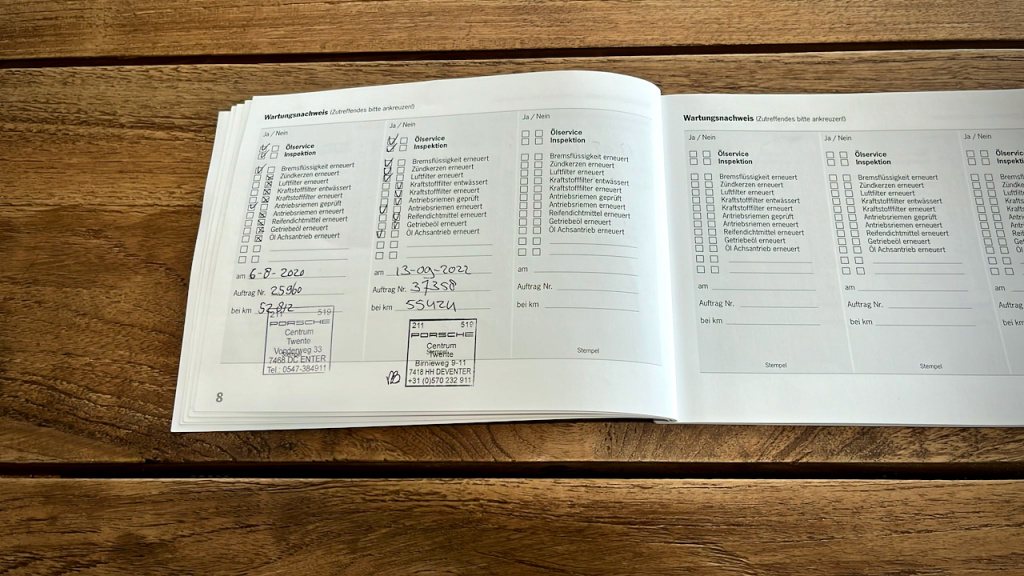 Wartungsnachweis (Zutreffendes bitte ankreuzen!)
Ja / Nein
Ölservice
Inspektion
Bremsflüssigkeit erneuert
Zündkerzen erneuert
Luftfilter erneuert
Kraftstofffilter entwässert
Kraftstofffilter erneuert
Antriebsriemen geprüft
Antriebsriemen erneuert
Reifendichtmittel erneuert
Getriebeöl erneuert
Öl Achsantrieb erneuert
am 6-8-2020
Auftrag Nr. 25960
bei km
211 519
PORSCHE
Centrum
Twente
Vonderweg 33
7468 DC ENTER
Tel.: 0547-384911
Ja / Nein
Ölservice
Inspektion
Bremsflüssigkeit erneuert
Zündkerzen erneuert
Luftfilter erneuert
Kraftstofffilter entwässert
Kraftstofffilter erneuert
Antriebsriemen geprüft
Antriebsriemen erneuert
Reifendichtmittel erneuert
Getriebeöl erneuert
Öl Achsantrieb erneuert
am 13-09-2022
Auftrag Nr. 37358
bei km 55424
211 519
PORSCHE
Centrum
Twente
Birnieweg 9-11
7418 HH DEVENTER
+31 (0)570 232 911
Ja / Nein
Ölservice
Inspektion
Bremsflüssigkeit erneuert
Zündkerzen erneuert
Luftfilter erneuert
Kraftstofffilter entwässert
Kraftstofffilter erneuert
Antriebsriemen geprüft
Antriebsriemen erneuert
Reifendichtmittel erneuert
Getriebeöl erneuert
Öl Achsantrieb erneuert
am
Auftrag Nr.
bei km
Stempel
8
Wartungsnachweis (Zutreffendes bitte ankreuzen!)
Ja / Nein
Ölservice
Inspektion
Bremsflüssigkeit erneuert
Zündkerzen erneuert
Luftfilter erneuert
Kraftstofffilter entwässert
Kraftstofffilter erneuert
Antriebsriemen geprüft
Antriebsriemen erneuert
Reifendichtmittel erneuert
Getriebeöl erneuert
Öl Achsantrieb erneuert
am
Auftrag Nr.
bei km
Stempel
Ja / Nein
Ölservice
Inspektion
Bremsflüssigkeit erneuert
Zündkerzen erneuert
Luftfilter erneuert
Kraftstofffilter entwässert
Kraftstofffilter erneuert
Antriebsriemen geprüft
Antriebsriemen erneuert
Reifendichtmittel erneuert
Getriebeöl erneuert
Öl Achsantrieb erneuert
am
Auftrag Nr.
bei km
Stempel
Ja / Nein
am
Auftrag Nr.
bei km